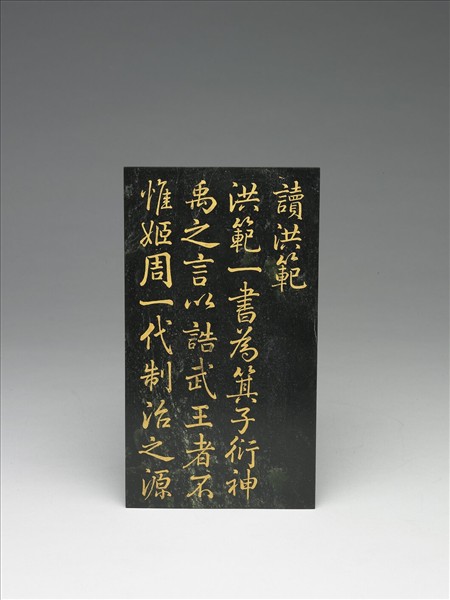 讀洪範
洪範一書為箕子衍神
禹之言以誥武王者不
惟姬周一代制治之源